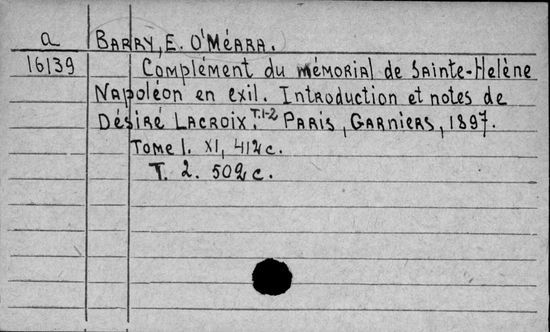 a BARRY, E. O'MÉARA.
16139 Complément du mémorial de Sainte-Helène
Napoléon en exil. Introduction et notes de
Désiré Lacroix. T.1-2 Paris, Garniers, 1897.
Tome 1. XI, 412 c.
T. 2. 502 c.